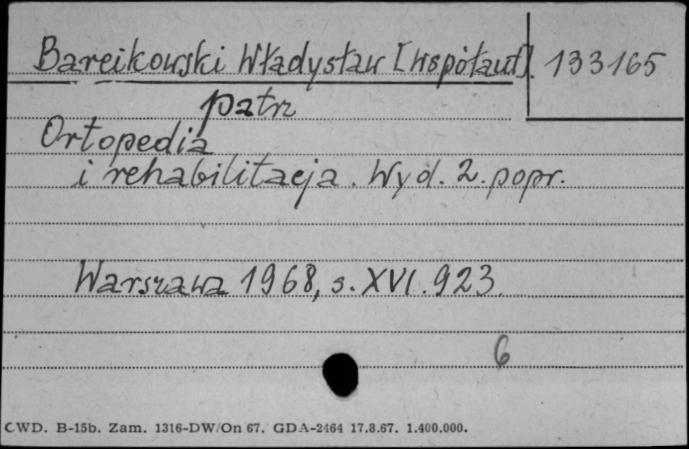 Bareikowski Władysław [współaut]. 133165
patrz
Ortopedia
i rehabilitacja. Wyd. 2. popr.
Warszawa 1968, s. XVI. 923.
6
CWD. B-15b. Zam. 1316-DW/On 67. GDA-2464 17.8.67. 1.400.000.